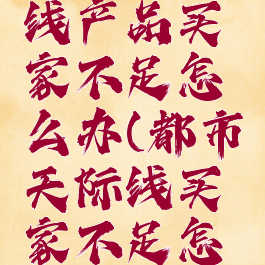 线产品买
家不足怎
么办(都市
天际线买
家不足怎